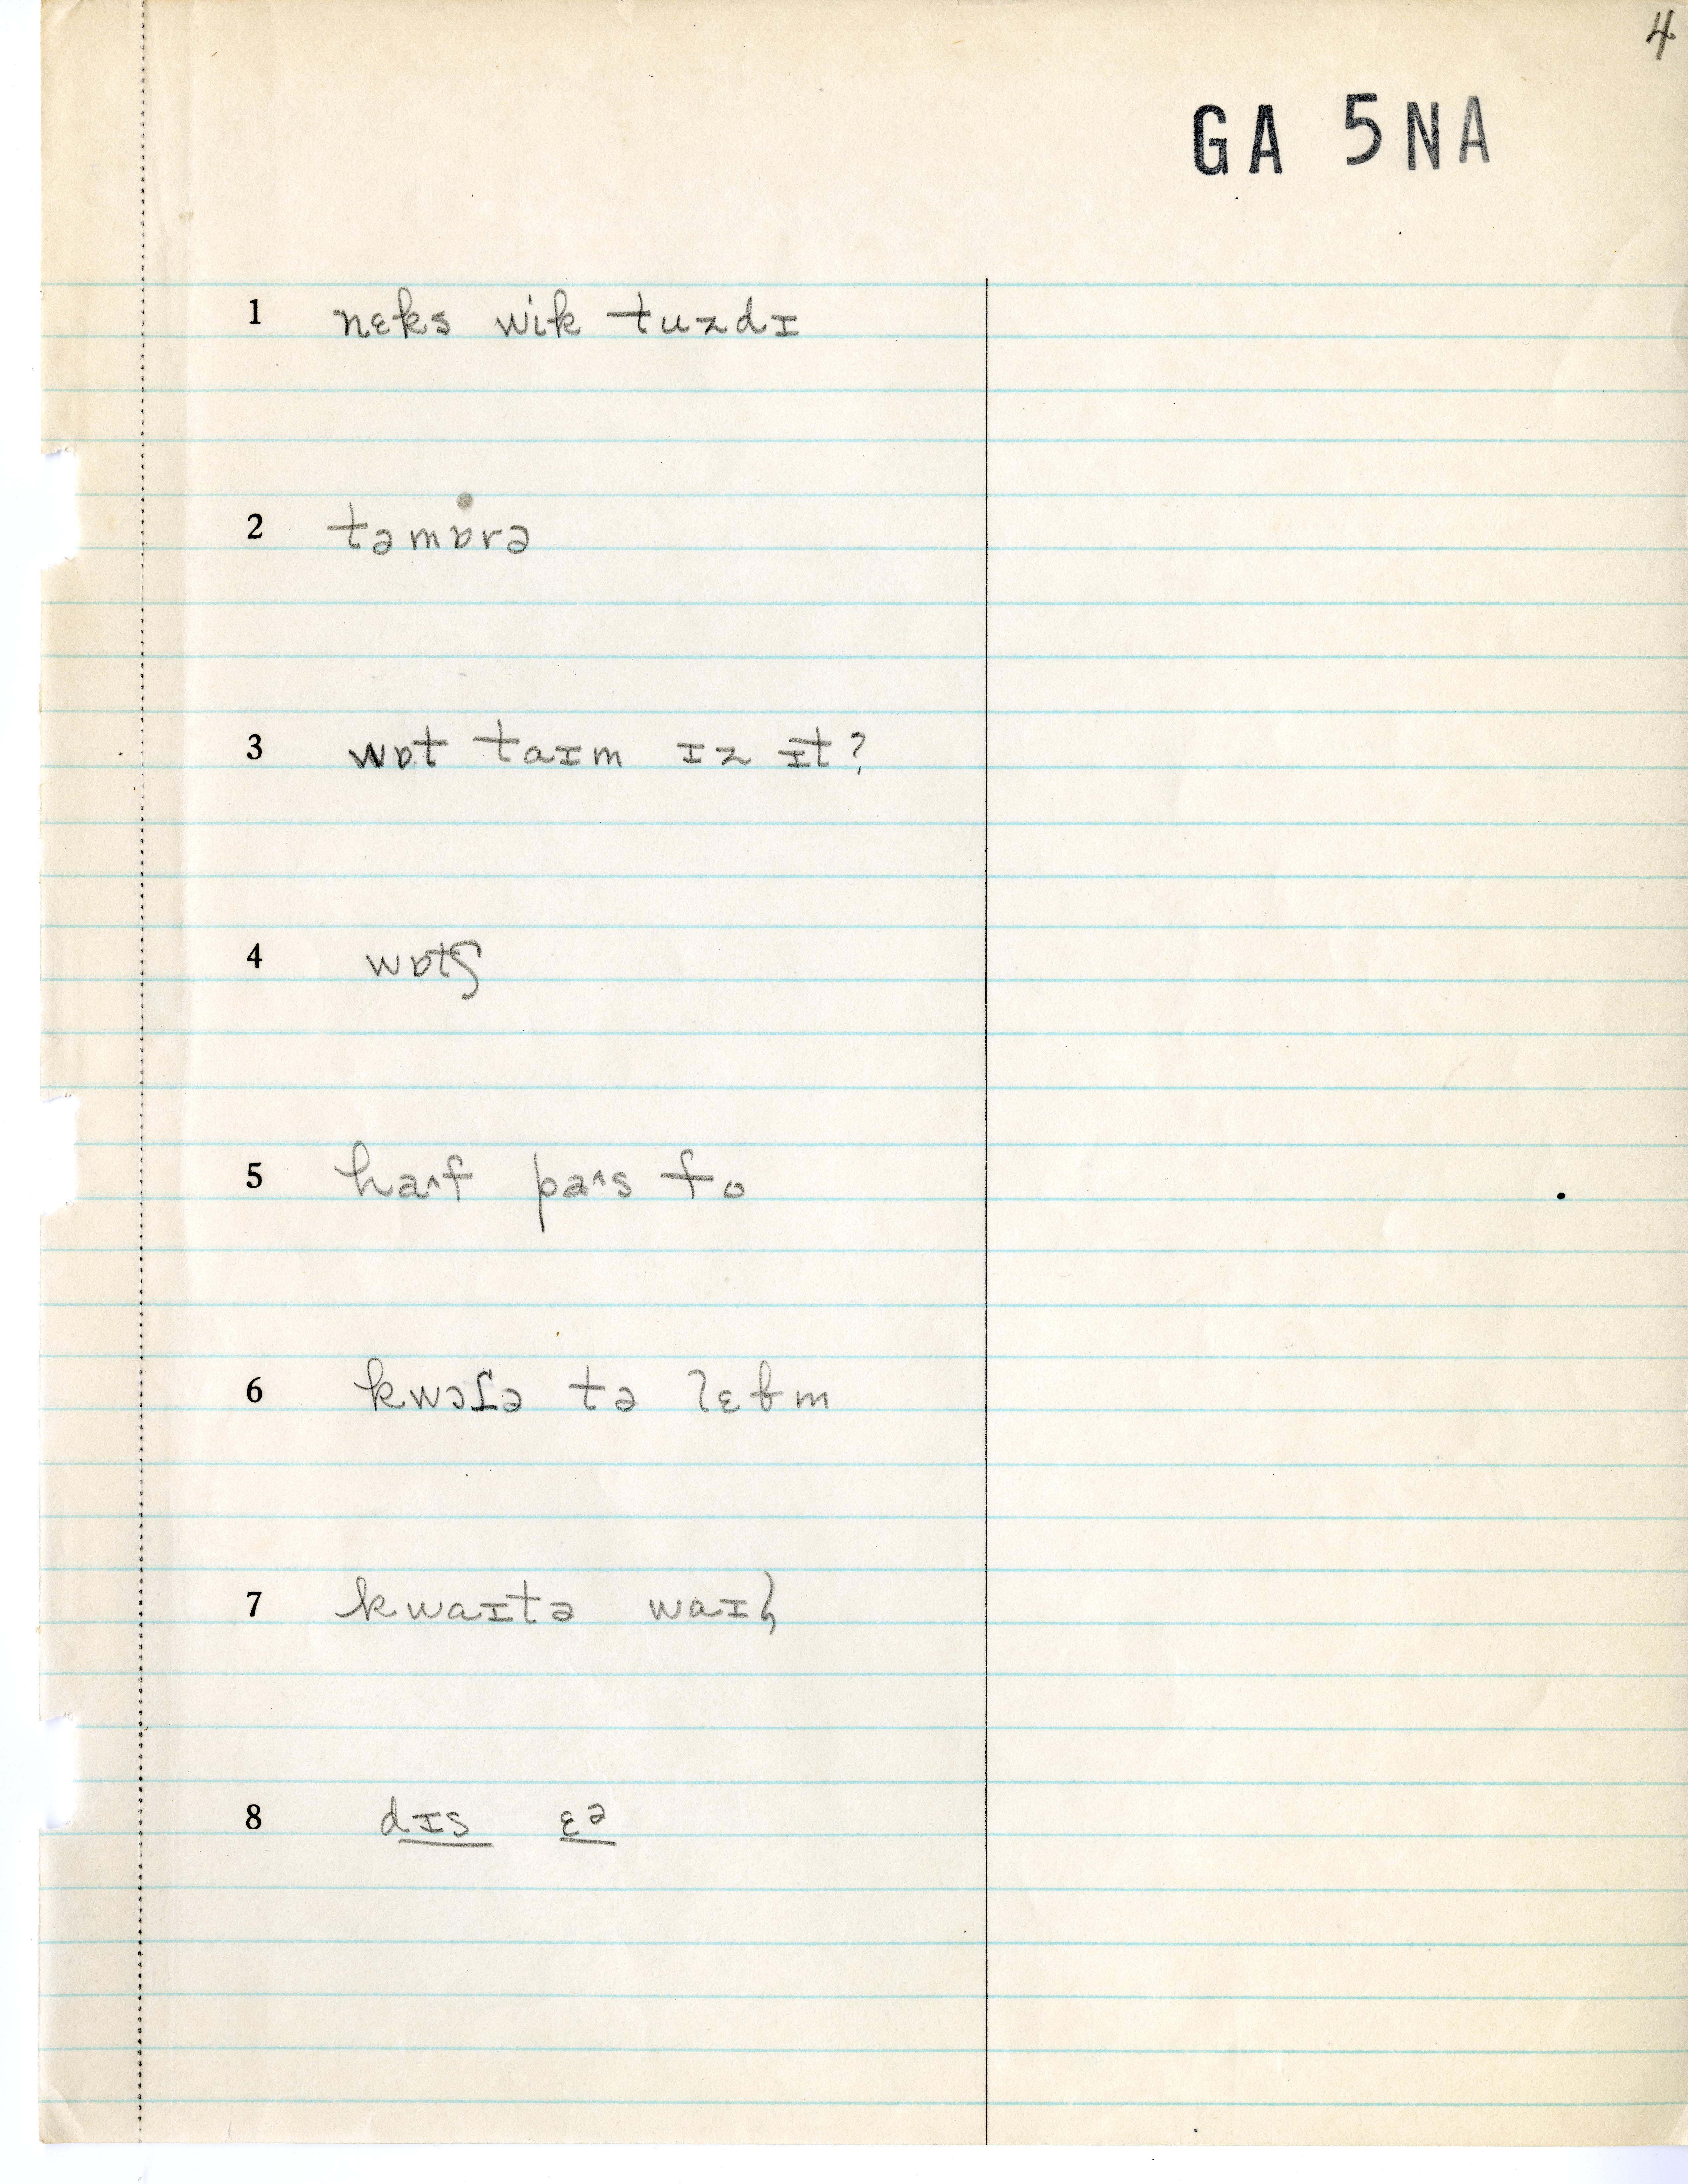 4
GA 5NA
1 nɛks wik tuzdɪ
2 təmɒrə
3 wɒt taɪm ɪz ɪt?
4 wɒtʃ
5 haˑf paˑs fo
6 kwɔɾə tə lɛbm
7 kwaɪtə waɪl
8 dɪs ɛə